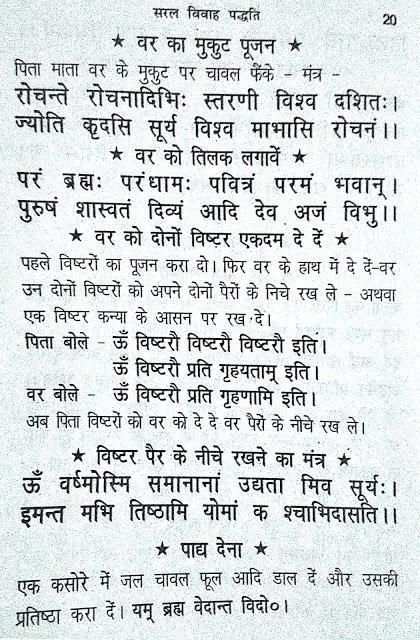 सरल विवाह पद्धति 20
★ वर का मुकुट पूजन ★
पिता माता वर के मुकुट पर चावल फैंके - मंत्र -
रोचन्ते रोचनादिभिः स्तरणी विश्व दशितः।
ज्योति कृदसि सूर्य विश्व माभासि रोचनं।।
★ वर को तिलक लगावें ★
परं ब्रह्मः परंधामः पवित्रं परमं भवान्।
पुरुषं शास्वतं दिव्यं आदि देव अजं विभु।।
★ वर को दोनों विष्टर एकदम दे दें ★
पहले विष्टरों का पूजन करा दो। फिर वर के हाथ में दे दें-वर
उन दोनों विष्टरों को अपने दोनों पैरों के निचे रख ले - अथवा
एक विष्टर कन्या के आसन पर रख दे।
पिता बोले - ऊँ विष्टरौ विष्टरौ विष्टरौ इति।
ऊँ विष्टरौ प्रति गृहयताम् इति।
वर बोले - ऊँ विष्टरौ प्रति गृहणामि इति।
अब पिता विष्टरों को वर को दे दे वर पैरों के नीचे रख ले।
★ विष्टर पैर के नीचे रखने का मंत्र ★
ऊँ वर्ष्मोस्मि समानानां उद्यता मिव सूर्यः।
इमन्त मभि तिष्ठामि योमां क श्चाभिदासति।।
★ पाद्य देना ★
एक कसोरे में जल चावल फूल आदि डाल दें और उसकी
प्रतिष्ठा करा दें। यम् ब्रह्म वेदान्त विदो०।